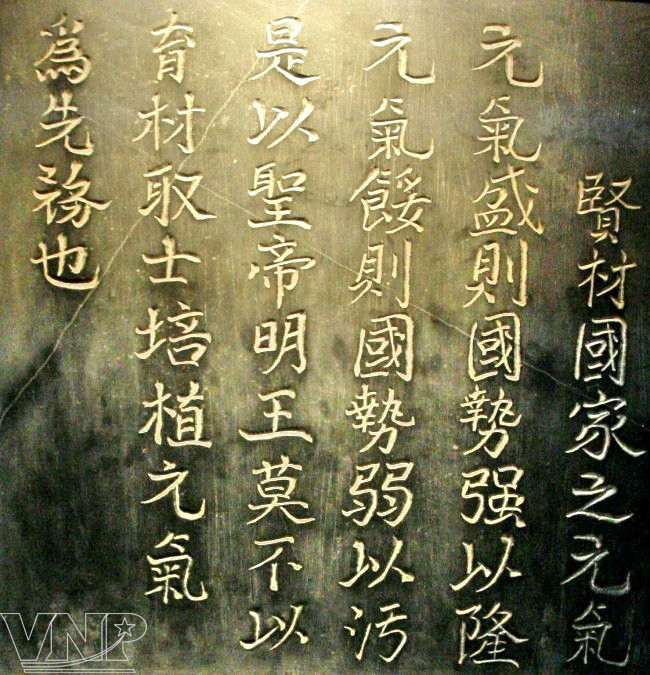 賢材國家之元氣
元氣盛則國勢强以隆
元氣餒則國勢弱以污
是以聖帝明王莫不以
育材取士培植元氣
為先務也
VNP